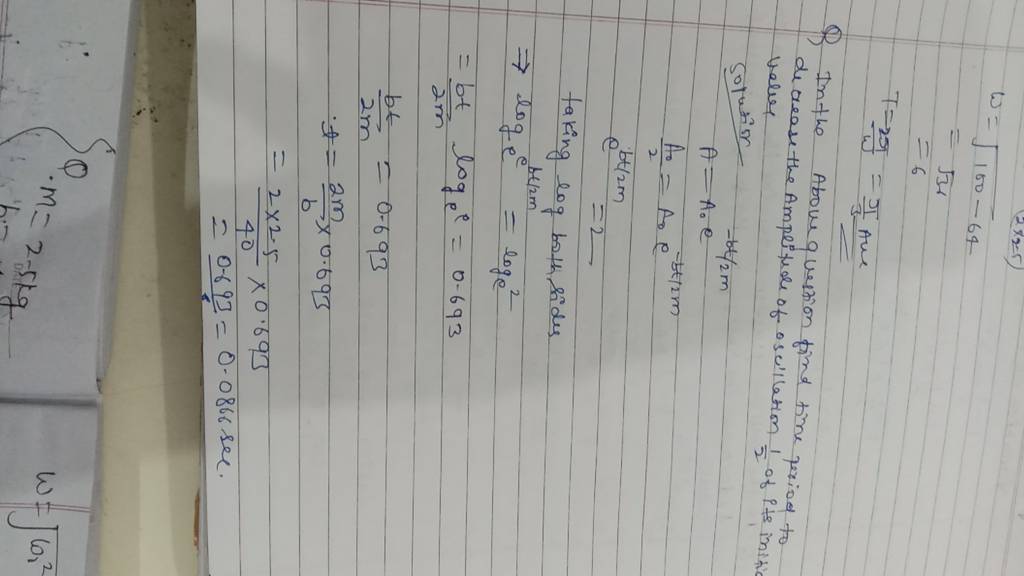 (2×2.5)
W = √100 - 64
= √36
= 6
T = 2π/W = π/3 Ans
Q) In the Above question find time period to
decrease the Ampletude of oscillation 1/2 of its initia
value
Solution
A = A₀ e^-bt/2m
A₀/2 = A₀ e^-bt/2m
e^bt/2m = 2
taking log both sides
⇒ log_e e^bt/2m = log_e 2
= bt/2m log_e e = 0.693
bt/2m = 0.693
∴ t = 2m/b × 0.693
= 2×2.5/40 × 0.693
= 0.693/ = 0.0866 sec.
Q
m = 2.5kg
b =
W = √ω₀²